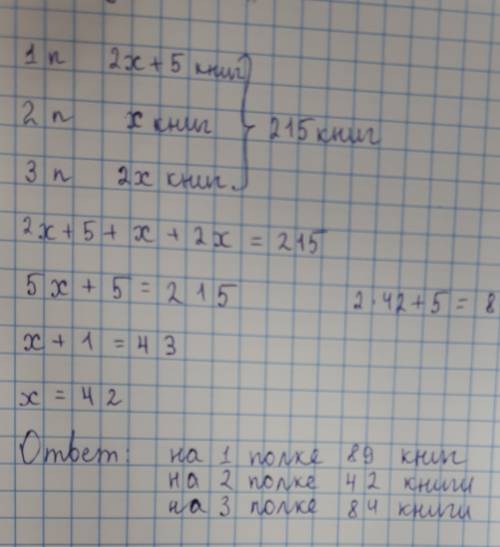 1 п 2x + 5 книг
2 п x книг 215 книг
3 п 2x книг
2x + 5 + x + 2x = 215
5x + 5 = 215 2·42+5 = 8
x + 1 = 43
x = 42
Ответ: на 1 полке 89 книг
на 2 полке 42 книги
на 3 полке 84 книги